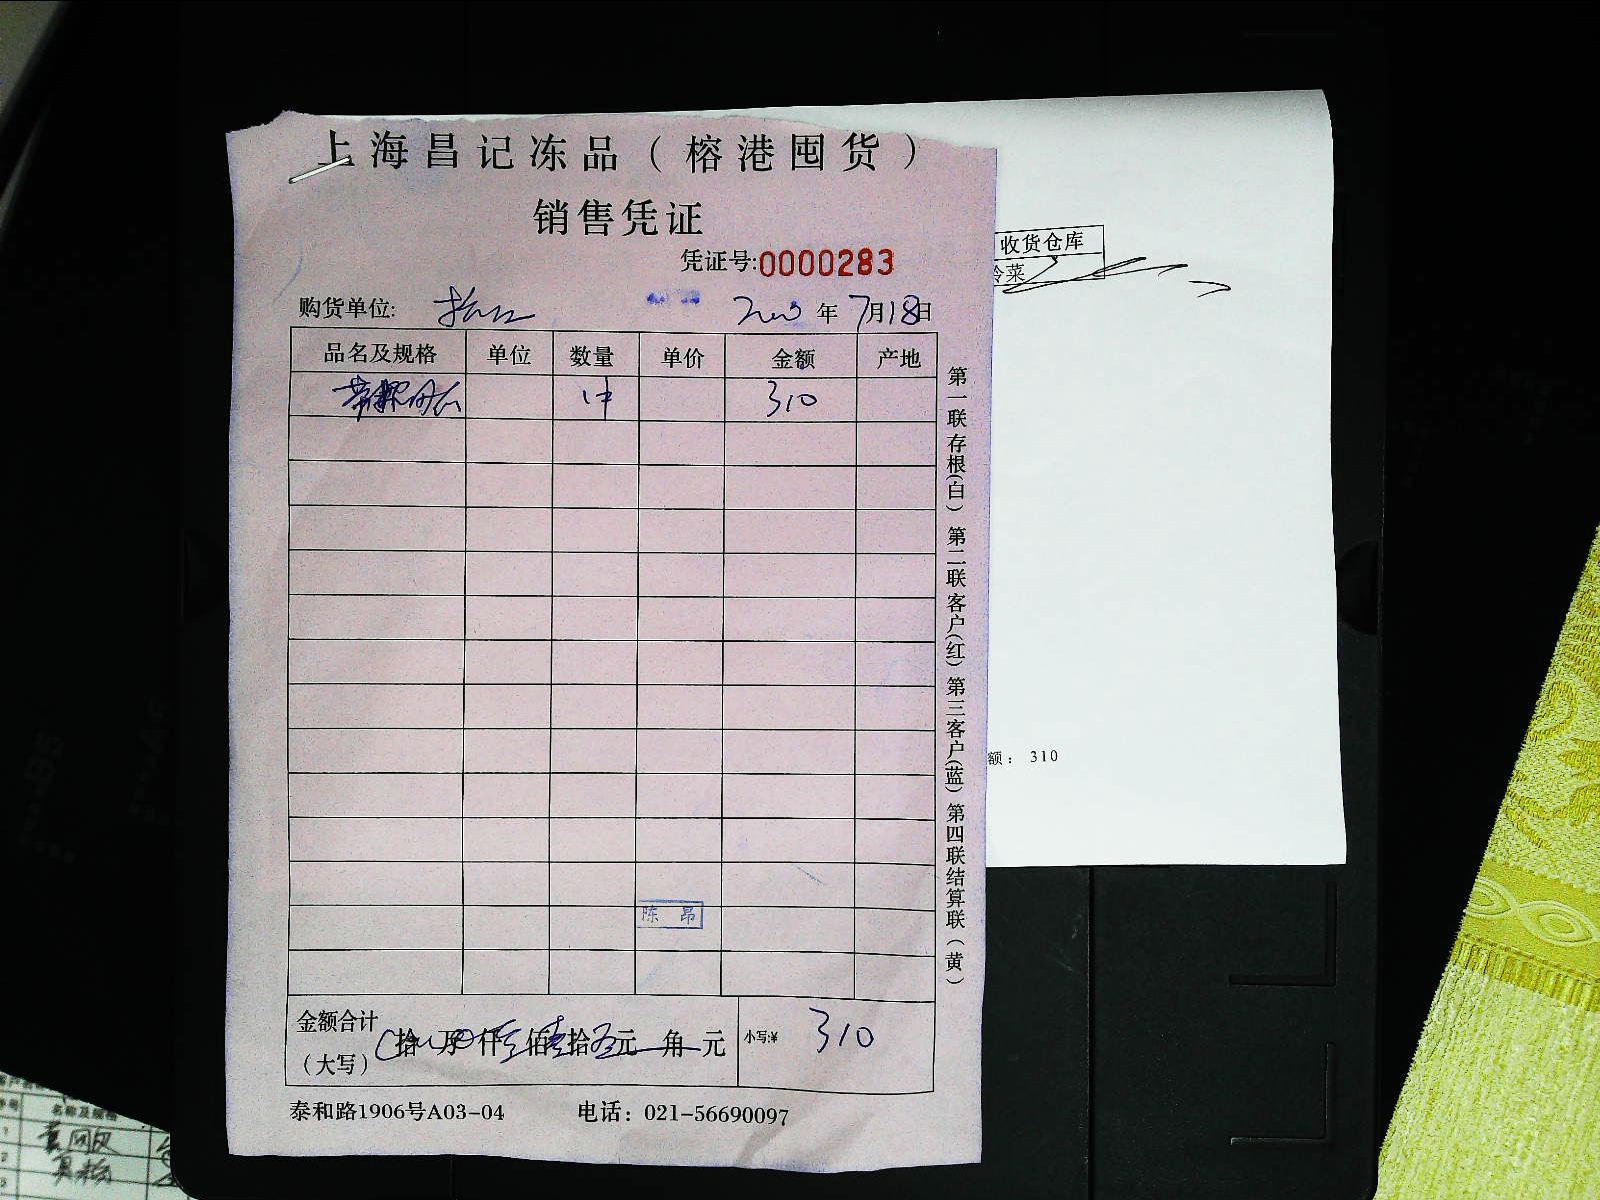 上海昌记冻品（榕港囤货）
销售凭证
凭证号:0000283
购货单位: 年7月18日
品名及规格 单位 数量 单价 金额 产地
310
陈昂
金额合计（大写） 拾 万 仟 佰 拾 元 角 元 小写:¥ 310
泰和路1906号A03-04 电话：021-56690097
第一联存根(白) 第二联客户(红) 第三客户(蓝) 第四联结算联(黄)
收货仓库
冷菜
额： 310
名称及规格